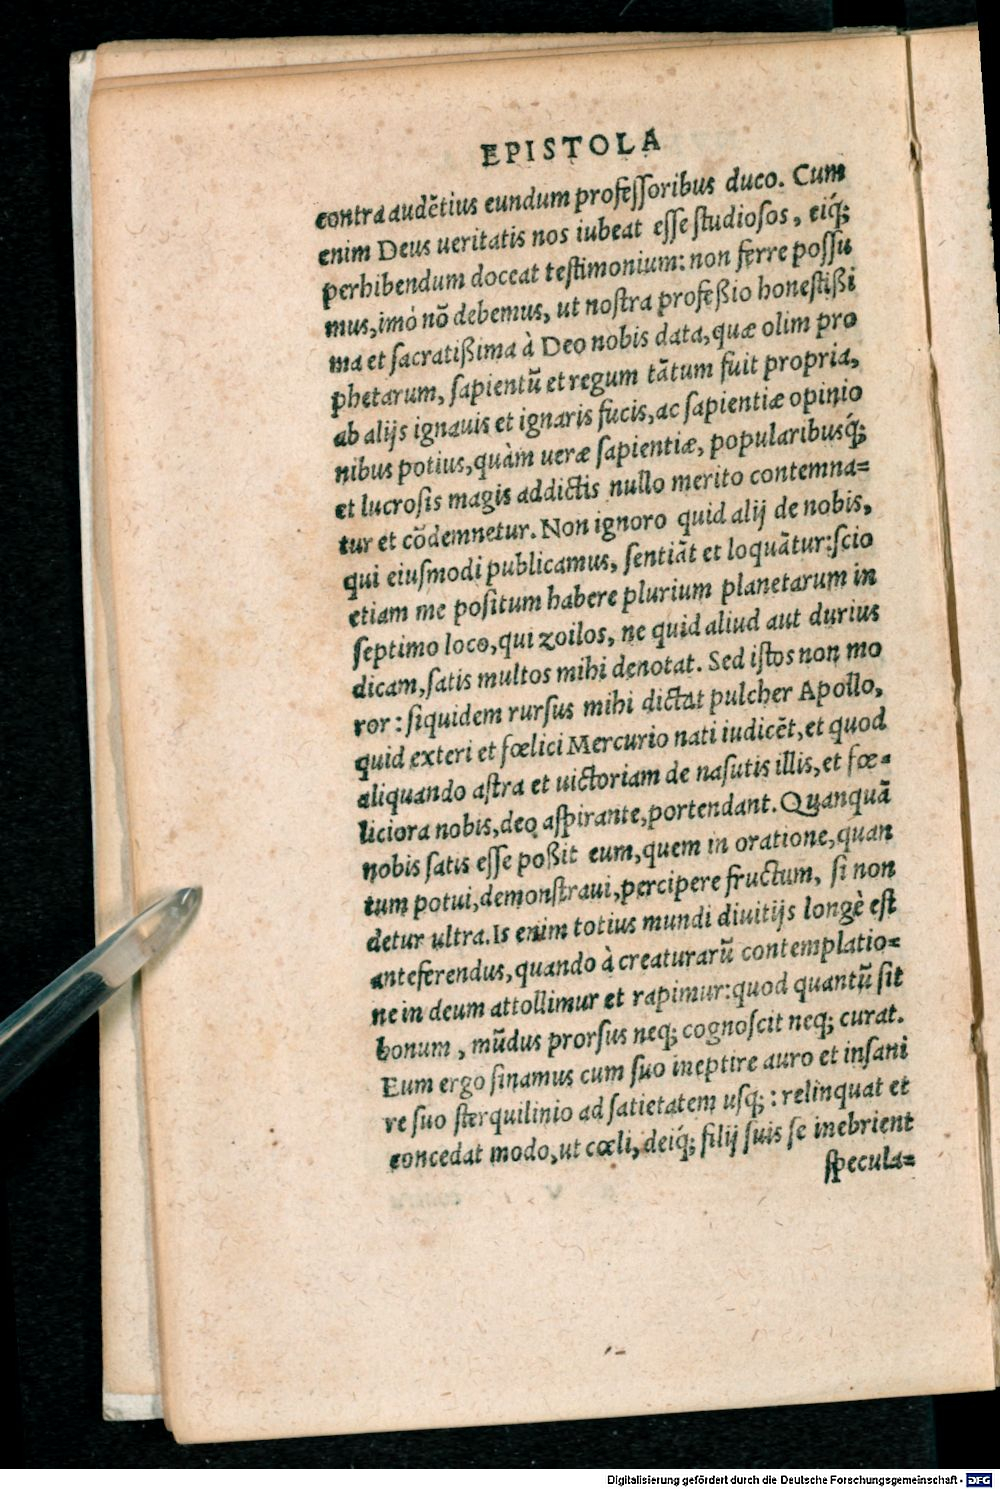 EPISTOLA
contra audẽtius eundum professoribus duco. Cum
enim Deus ueritatis nos iubeat esse studiosos, eiq́;
perhibendum doceat testimonium: non ferre possu
mus, imò nõ debemus, ut nostra profeßio honestißi
ma et sacratißima à Deo nobis data, quæ olim pro
phetarum, sapientũ et regum tãtum fuit propria,
ab alijs ignauis et ignaris fucis, ac sapientiæ opinio
nibus potius, quàm ueræ sapientiæ, popularibusq́;
et lucrosis magis addictis nullo merito contemna=
tur et cõdemnetur. Non ignoro quid alij de nobis,
qui eiusmodi publicamus, sentiãt et loquãtur: scio
etiam me positum habere plurium planetarum in
septimo loco, qui zoilos, ne quid aliud aut durius
dicam, satis multos mihi denotat. Sed istos non mo
ror: siquidem rursus mihi dictat pulcher Apollo,
quid exteri et fœlici Mercurio nati iudicẽt, et quod
aliquando astra et uictoriam de nasutis illis, et fœ=
liciora nobis, deo aspirante, portendant. Quanquã
nobis satis esse poßit eum, quem in oratione, quan
tum potui, demonstraui, percipere fructum, si non
detur ultra. Is enim totius mundi diuitijs longè est
anteferendus, quando à creaturarũ contemplatio=
ne in deum attollimur et rapimur: quod quantũ sit
bonum, mũdus prorsus neq; cognoscit neq; curat.
Eum ergo sinamus cum suo ineptire auro et insani
re suo sterquilinio ad satietatem usq;: relinquat et
concedat modo, ut cœli, deiq́; filij suis se inebrient
specula=
Digitalisierung gefördert durch die Deutsche Forschungsgemeinschaft - DFG